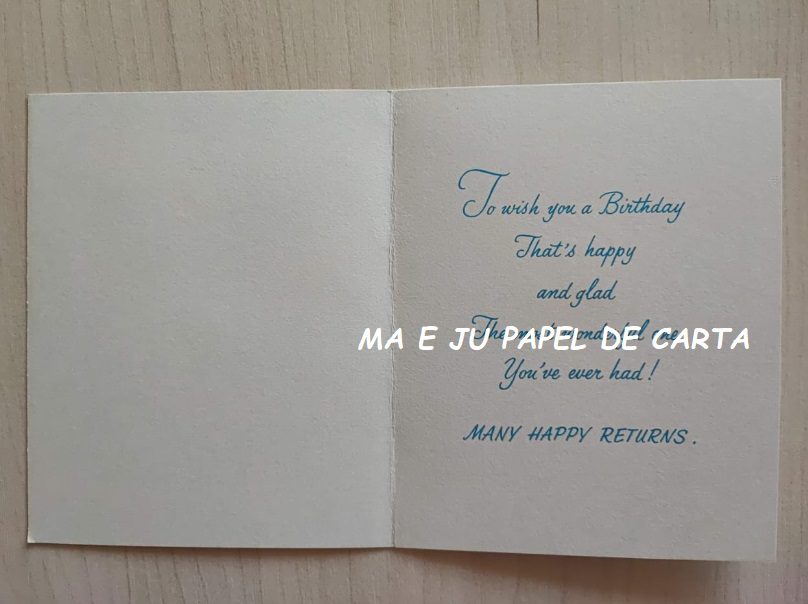 To wish you a Birthday
That's happy
and glad
The most wonderful one
MA E JU PAPEL DE CARTA
You've ever had!
MANY HAPPY RETURNS.